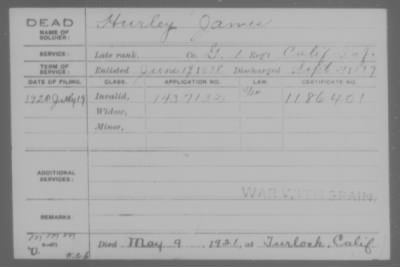 DEAD Hurley James
NAME OF SOLDIER:
SERVICE: Late rank, Co. G, 1 Reg't Calif Inf.
TERM OF SERVICE: Enlisted June 1898 Discharged Sept
DATE OF FILING. CLASS. APPLICATION NO. LAW. CERTIFICATE NO.
1920 July 19 Invalid, 1186401
Widow,
Minor,
ADDITIONAL SERVICES:
WAR WITH SPAIN.
REMARKS:
Died May 9 1921, at Turlock, Calif